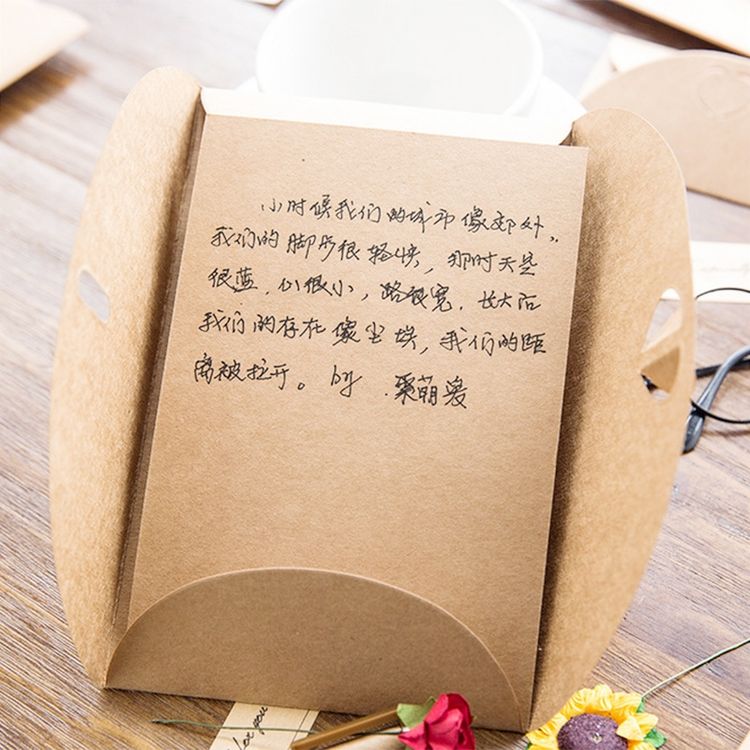 小时候我们的城市像郊外。
我们的脚步很轻快，那时天空
很蓝，心很小，路很宽，长大后
我们的存在像尘埃，我们的距
离被拉开。by
you